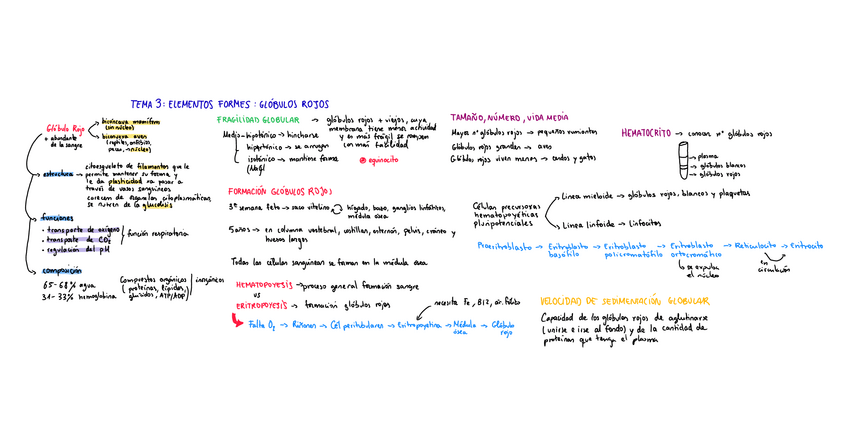 TEMA 3: ELEMENTOS FORMES: GLÓBULOS ROJOS
Glóbulo Rojo
+ abundante
de la sangre
bicóncava mamífero
(sin núcleo)
biconvexa aves
(reptiles, anfibios,
peces, → núcleo)
estructura → citoesqueleto de filamentos que le
permite mantener su forma y
le da plasticidad pa pasar a
través de vasos sanguíneos
carecen de organelas citoplasmáticas,
se nutren de la glucolisis
funciones
· transporte de oxígeno
· transporte de CO2
· regulación del pH
función respiratoria
composición
65-68% agua
34-33% hemoglobina
Compuestos orgánicos
(proteínas, lípidos,
glúcidos, ATP/ADP)
inorgánicos
FRAGILIDAD GLOBULAR → glóbulos rojos + viejos, cuya
membrana tiene menos actividad
y es más frágil se rompen
con más facilidad
Medio - hipotónico → hincharse
hipertónico → se arrugan
isotónico → mantiene forma
(NaCl)
equinocito
FORMACIÓN GLÓBULOS ROJOS
3ª semana feto → saco vitelino
hígado, bazo, ganglios linfáticos,
médula ósea
5 años → en columna vertebral, costillas, esternón, pelvis, cráneo y
huesos largos
Todas las células sanguíneas se forman en la médula ósea
HEMATOPOYESIS → proceso general formación sangre
vs
ERITROPOYESIS → formación glóbulos rojos
necesita Fe, B12, ác. fólico
Falta O2 → Riñones → Cél peritubulares → Eritropoyetina → Médula ósea → Glóbulo rojo
TAMAÑO, NÚMERO, VIDA MEDIA
Mayor nº glóbulos rojos → pequeños rumiantes
Glóbulos rojos grandes → aves
Glóbulos rojos viven menos → cerdos y gatos
HEMATOCRITO → conocer nº glóbulos rojos
→ plasma
→ glóbulos blancos
→ glóbulos rojos
Células precursoras
hematopoyéticas
pluripotenciales
Línea mieloide → glóbulos rojos, blancos y plaquetas
Línea linfoide → linfocitos
Proeritroblasto → Eritroblasto basófilo → Eritroblasto policromatófilo → Eritroblasto ortocromático → Reticulocito → Eritrocito
se expulsa
el núcleo
en
circulación
VELOCIDAD DE SEDIMENTACIÓN GLOBULAR
Capacidad de los glóbulos rojos de aglutinarse
(unirse e irse al fondo) y de la cantidad de
proteínas que tenga el plasma